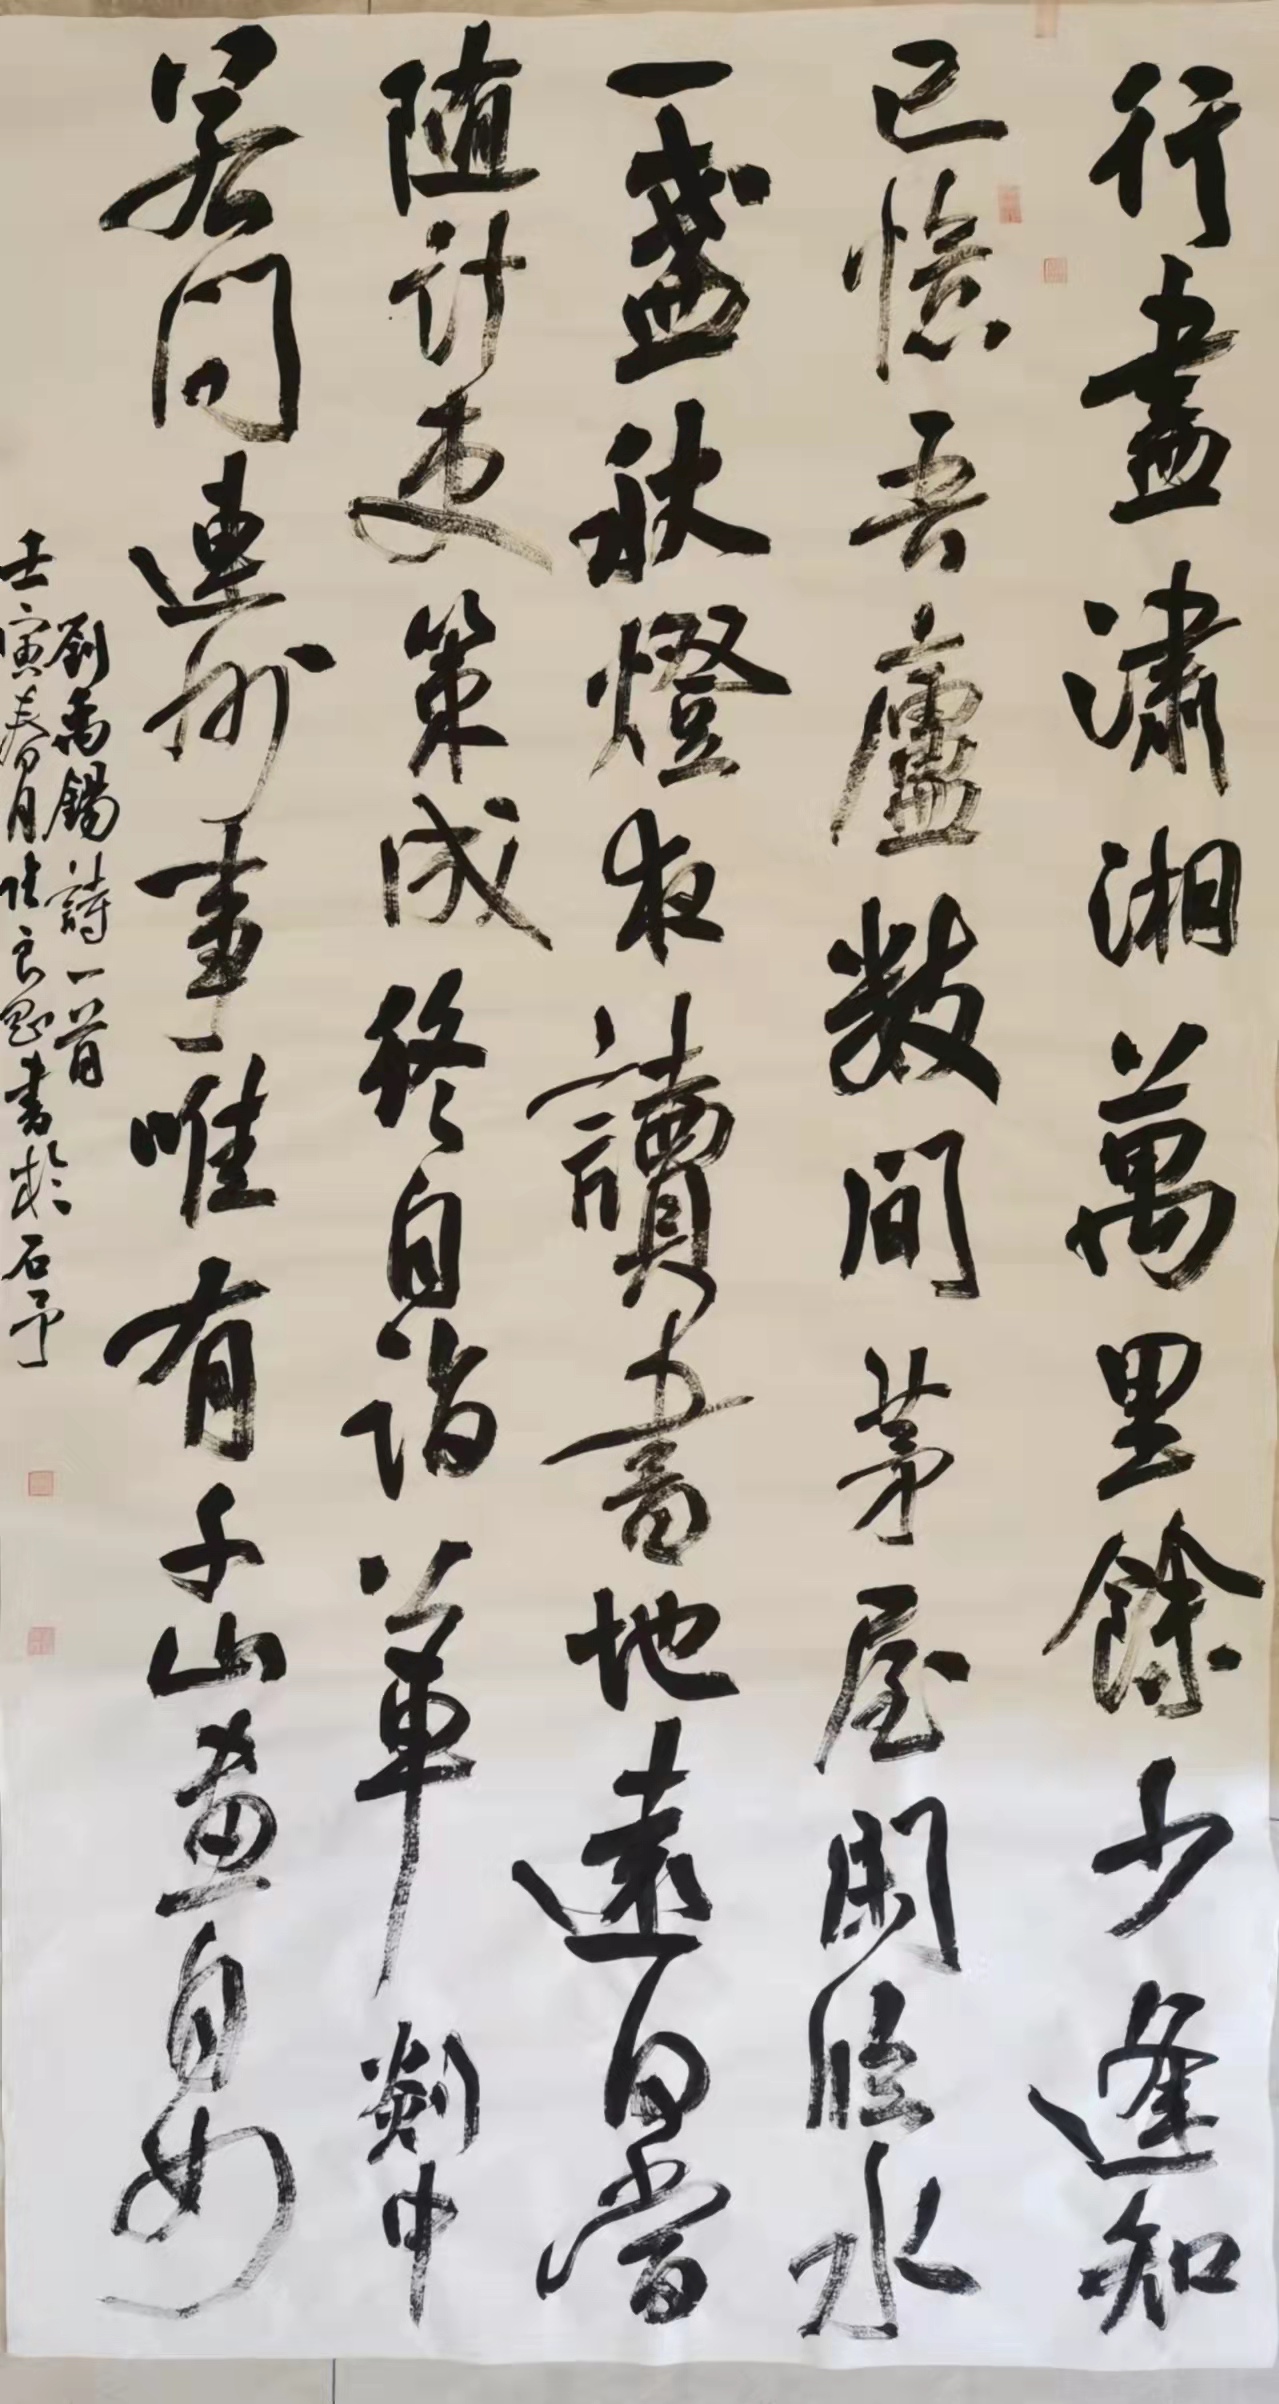 行盡瀟湘萬里餘少逢知
已憶吾廬數間茅屋閑臨水
一盞秋燈夜讀書地遠何當
隨計吏策成終自詣公車剡中
若問連州事唯有千山畫自如
劉禹錫詩一首
壬寅春月 良 書於石予